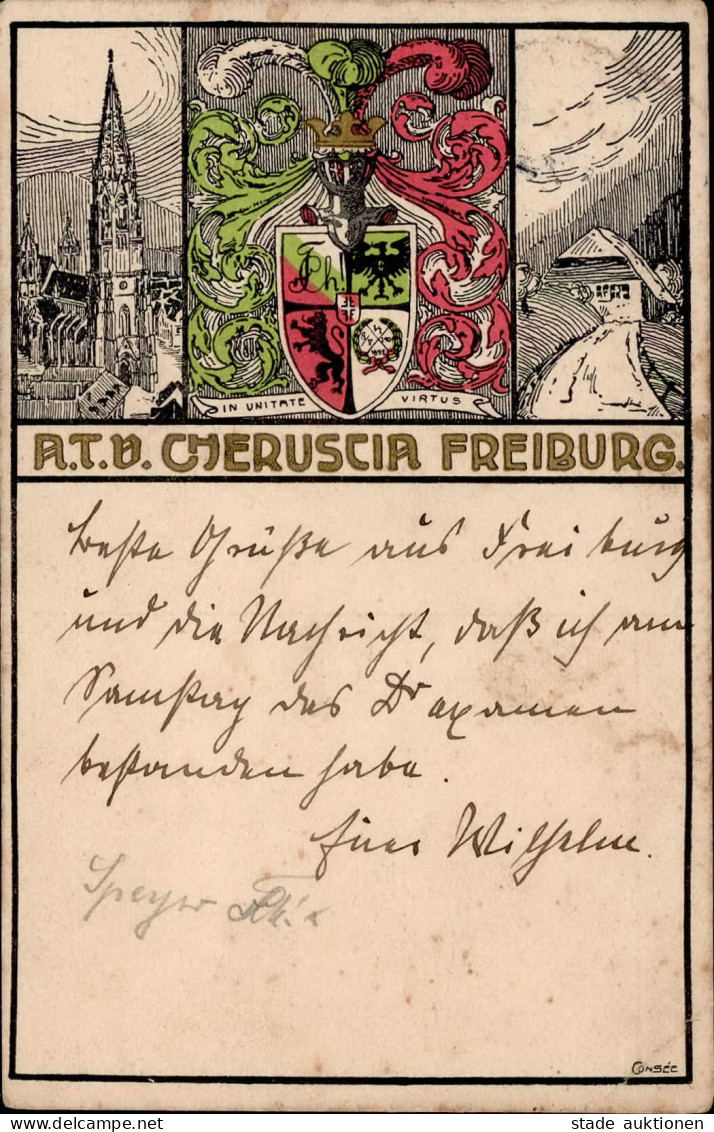 IN UNITATE VIRTUS
A.T.V. CHERUSCIA FREIBURG.
Beste Grüße aus Freiburg
und die Nachricht, daß ich am
Samstag das Dr examen
bestanden habe.
Euer Wilhelm.
Speyer
CONSÉE
stade auktionen